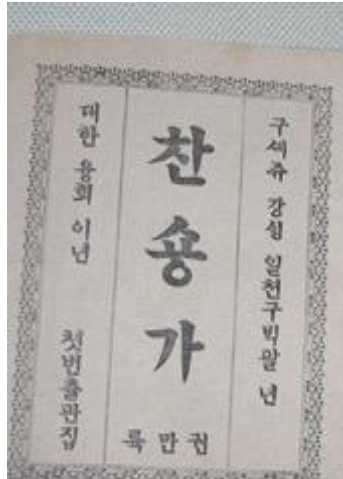 구셰쥬 강싱 일쳔구빅팔 년
찬숑가
륙만권
대한 융희 이년
첫번츌판집